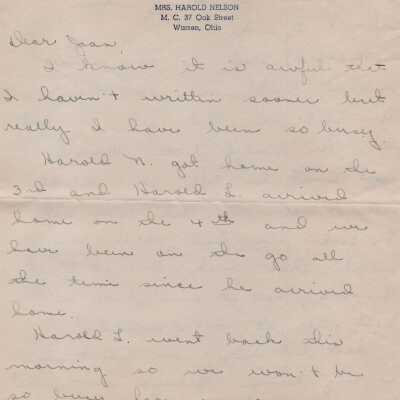 MRS. HAROLD NELSON
M. C. 37 Oak Street
Warren, Ohio
Dear Joan,
I know it is awful that
I haven't written sooner but
really I have been so busy.
Harold N. got home on the
3rd and Harold L. arrived
home on the 4th and we
have been on the go all
the time since he arrived
home.
Harold L. went back this
morning so we won't be
so busy